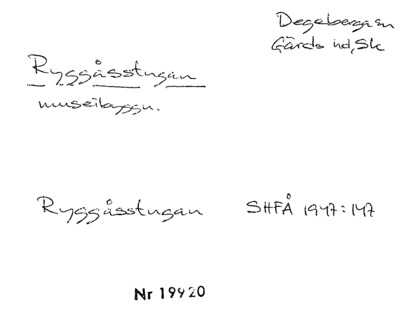 Degeberga sn
Gärds hd, Sk
Ryggåsstugan
museibyggn.
Ryggåsstugan SHFÅ 1947:147
Nr 19920